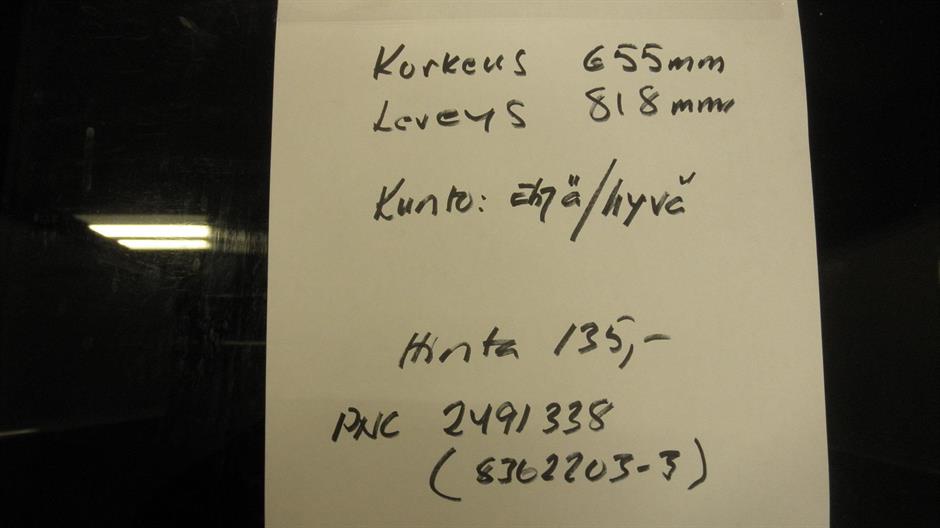 Korkeus 655mm
Leveys 818mm
Kunto: ehjä/hyvä
Hinta 135,-
PNC 2491338
(8362203-3)